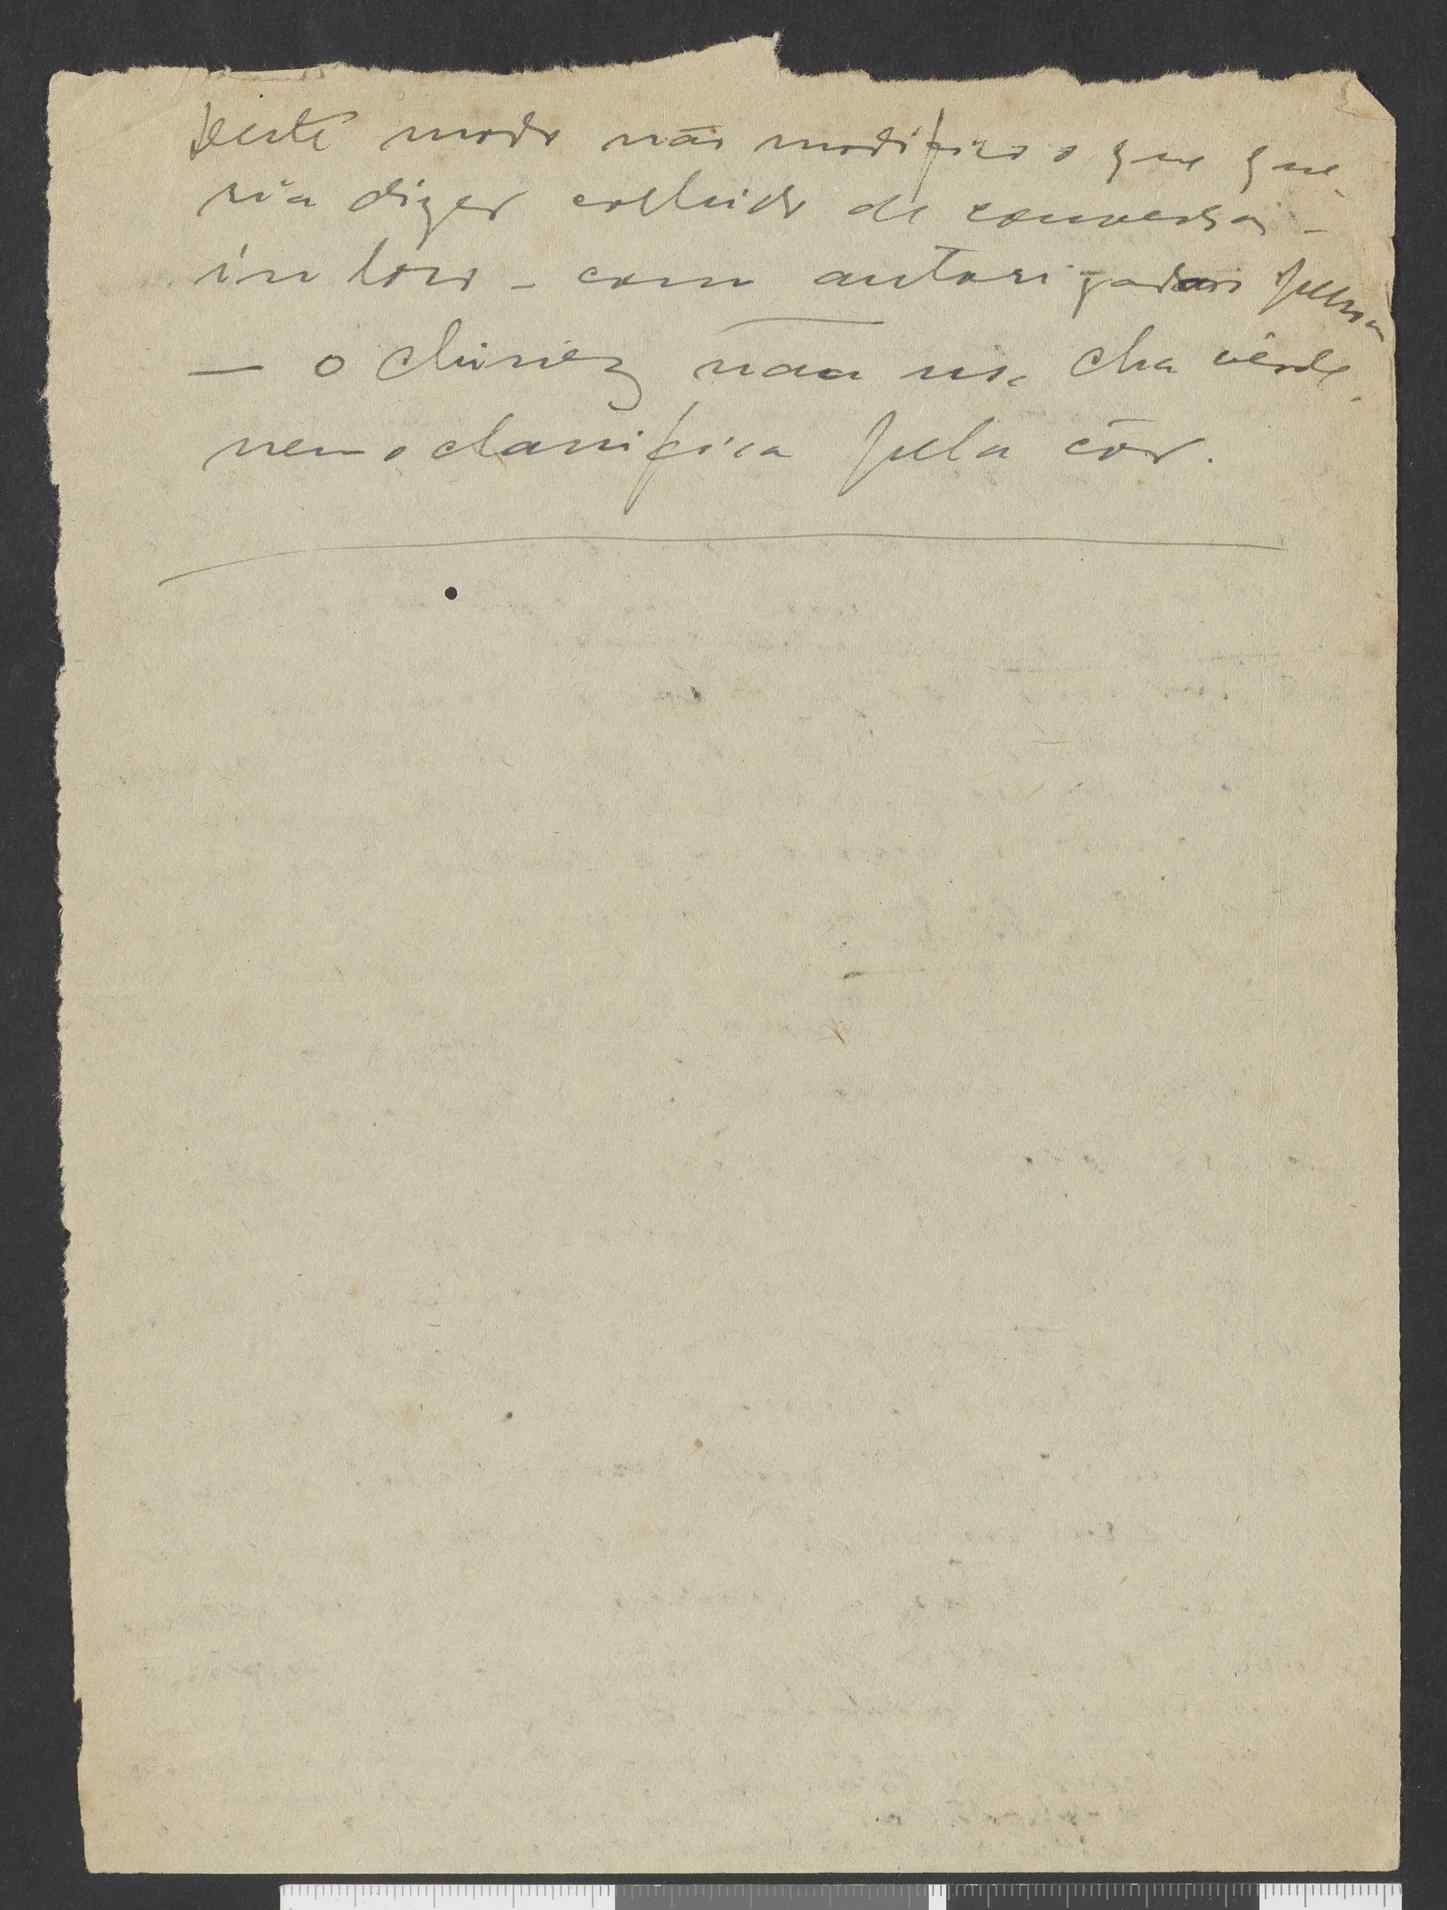 Deste modo não modifico o que que-
ria dizer colhido de conversas -
in loco - com autorizadas pessoas
— o chinez não usa cha verde,
nem o classifica pela côr.